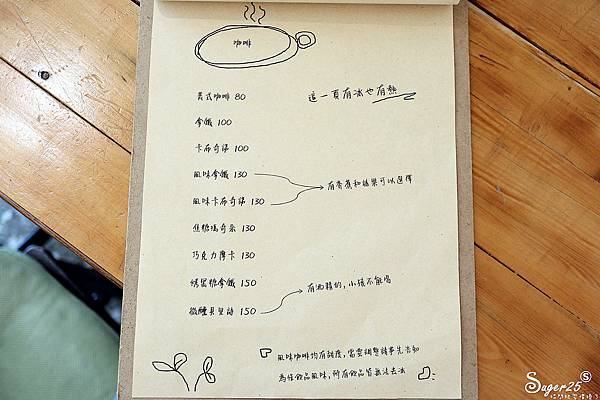 咖啡
美式咖啡 80
這一頁有冰也有熱
拿鐵 100
卡布奇諾 100
風味拿鐵 130
有香蕉和糖果可以選擇
風味卡布奇諾 130
焦糖瑪奇朵 130
巧克力摩卡 130
烤黑糖拿鐵 150
有酒精的,小孩不能喝
微醺貝里詩 150
風味咖啡均有甜度,需要調整請事先告知
為維飲品風味,所有飲品皆無法去冰
Suger25